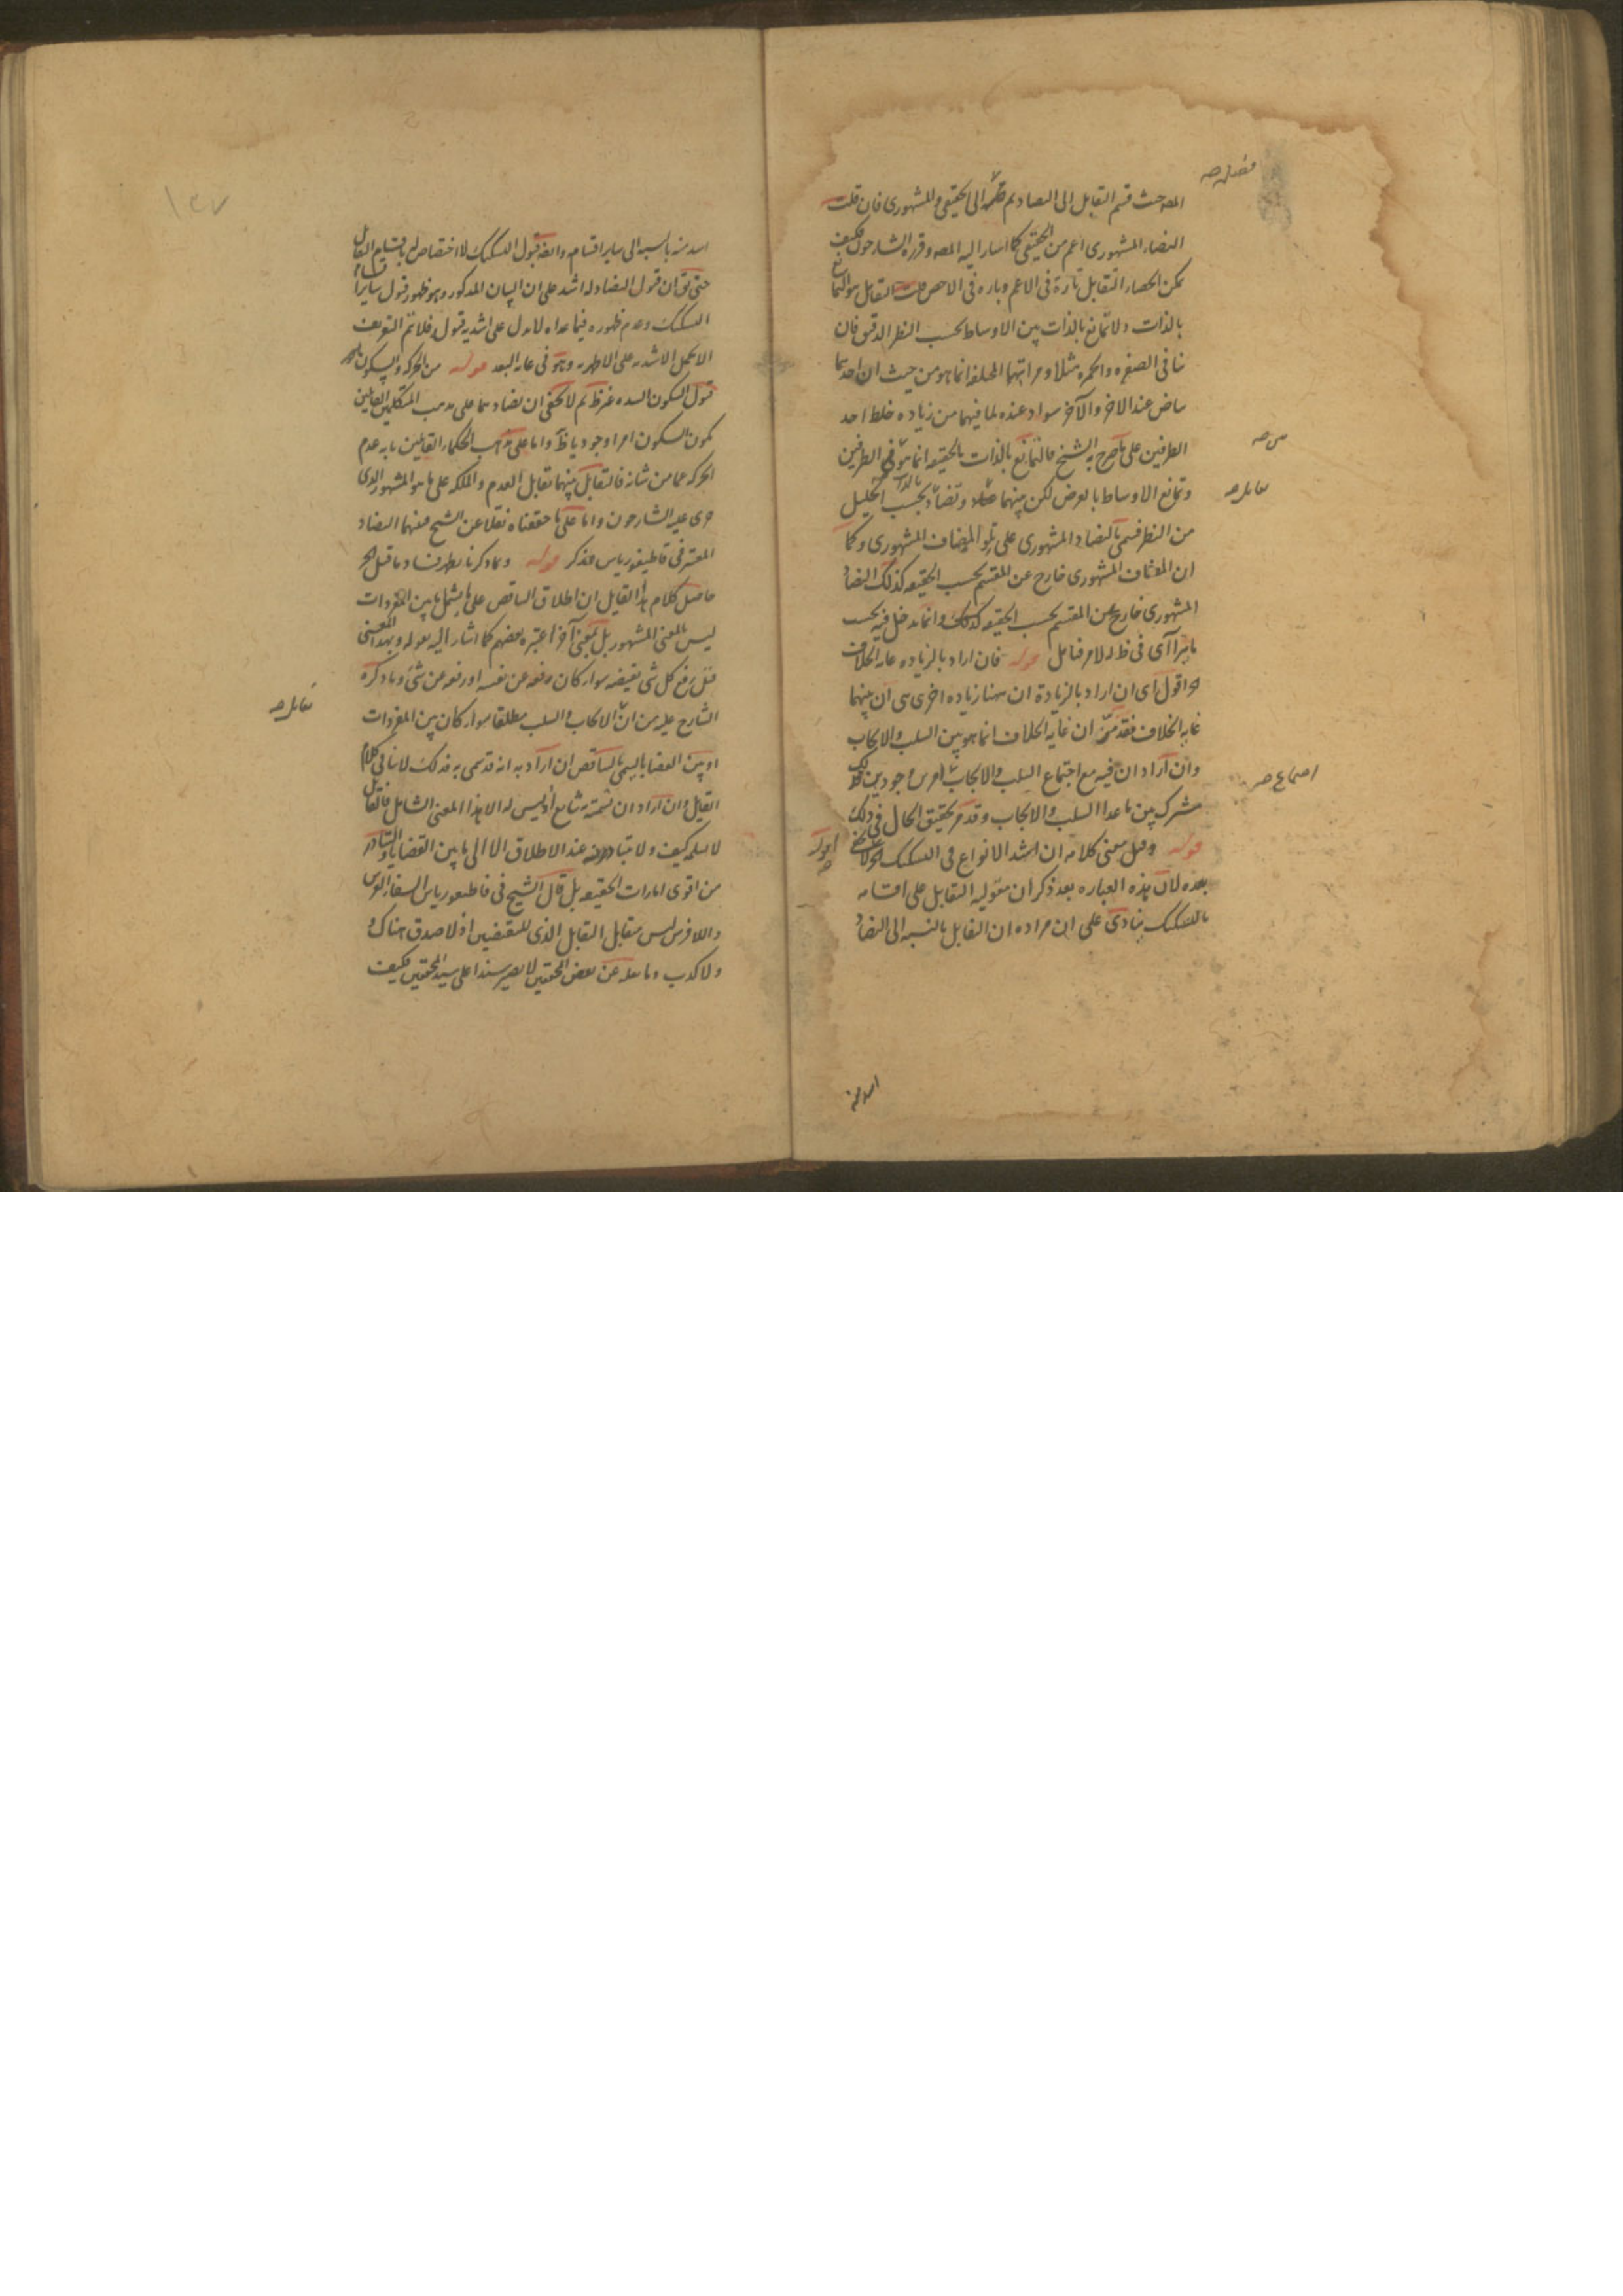 المص حيث قسم التقابل الى التضاد ثم قسمه الى الحقيقى والمشهورى فان قلت
التضاد المشهورى اعم من الحقيقى كما اشار اليه المص وقرره الشارحون فكيف
يمكن انحصار التقابل تارة فى الاعم وتارة فى الاخص قلت التقابل هو التمانع
بالذات ولا تمانع بالذات بين الاوساط بحسب النظر الدقيق فان
تنافى الصفرة والحمرة مثلا ومراتبهما المختلفة انما هو من حيث ان احديهما
بياض عند الاخر والآخر سواد عنده لما فيهما من زيادة خلط احد
الطرفين على ما صرح به الشيخ فالتمانع بالذات بالحقيقة انما هو فى الطرفين
وتمانع الاوساط بالعرض لكن بينهما وتضاد بحسب الجليل
من النظر فسمى بالتضاد المشهورى على تلو المضاف المشهورى وكما
ان المضاف المشهورى خارج عن المقسم بحسب الحقيقة كذلك التضاد
المشهورى خارج عن المقسم بحسب الحقيقة كذلك وانما يدخل فيه بحسب
ما يتراآى فى ظ الامر فتامل قوله فان اراد بالزيادة غاية الخلاف
اقول اى ان اراد بالزيادة ان هنا زيادة اخرى هى ان بينهما
غاية الخلاف فقد مر ان غاية الخلاف انما هو بين السلب والايجاب
وان اراد ان فيه مع اجتماع السلب والايجاب امرين وجوديين فذلك
مشترك بين ما عدا السلب والايجاب وقد مر تحقيق الحال فى ذلك
قوله وقيل معنى كلامه ان اشد الانواع فى التشكيك
بعده لان هذه العبارة بعد ذكر ان مقولية التقابل على اقسامه
بالتشكيك ينادى على ان مراده ان التقابل بالنسبة الى التضاد
اشد منه
اشد منه بالنسبة الى ساير اقسامه وايضا قبول التشكيك لا اختصاص له باقسام التقابل
حتى يق ان قبول التضاد له اشد على ان البيان المذكور وهو ظهور قبول
التشكيك وعدم ظهوره فيما عداه لا يدل على اشدية قبوله فلا يتم التقريب
الا بحمل الاشدية على الاظهرية وهو فى غاية البعد قوله من الحركة والسكون
قبول السكون الشدة غير ظ ثم لا يخفى ان تضادهما على مذهب المتكلمين القائلين
بكون السكون امرا وجوديا ظ واما على مذهب الحكماء القايلين بانه عدم
الحركة عما من شانه فالتقابل بينهما تقابل العدم والملكة على ما هو المشهور الذى
جرى عليه الشارحون واما على ما حققناه نقلا عن الشيخ فبينهما التضاد
المعتبر فى قاطيغورياس فتذكر قوله وبما ذكرنا يظهر فساد ما قيل الخ
حاصل كلام هذا القايل ان اطلاق التناقض على ما يشمل ما بين المفردات
ليس بالمعنى المشهور بل بمعنى آخر اعتبره بعضهم كما اشار اليه بقوله وبهذا المعنى
قيل رفع كل شى نقيضه سواء كان رفعه عن نفسه او رفعه عن شئ وما ذكره
الشارح عليه من ان الايجاب والسلب مطلقا سواء كان بين المفردات
او بين القضايا يسمى بالتناقض ان اراد به انه قد سمى به فذلك لا ينافى كلام
القايل وان اراد ان تسميته شايع او ليس له الا هذا المعنى الشامل
لا نسلمه كيف ولا يتبادر منه عند الاطلاق الا الى ما بين القضايا والتبادر
من اقوى امارات الحقيقة بل قال الشيخ فى قاطيغورياس الشفا الفرس
واللافرس ليس يتقابل التقابل الذى للنقيضين اذ لا صدق هناك
ولا كذب وما نقله عن بعض المحققين لا يصير سندا على سيد المحققين فكيف